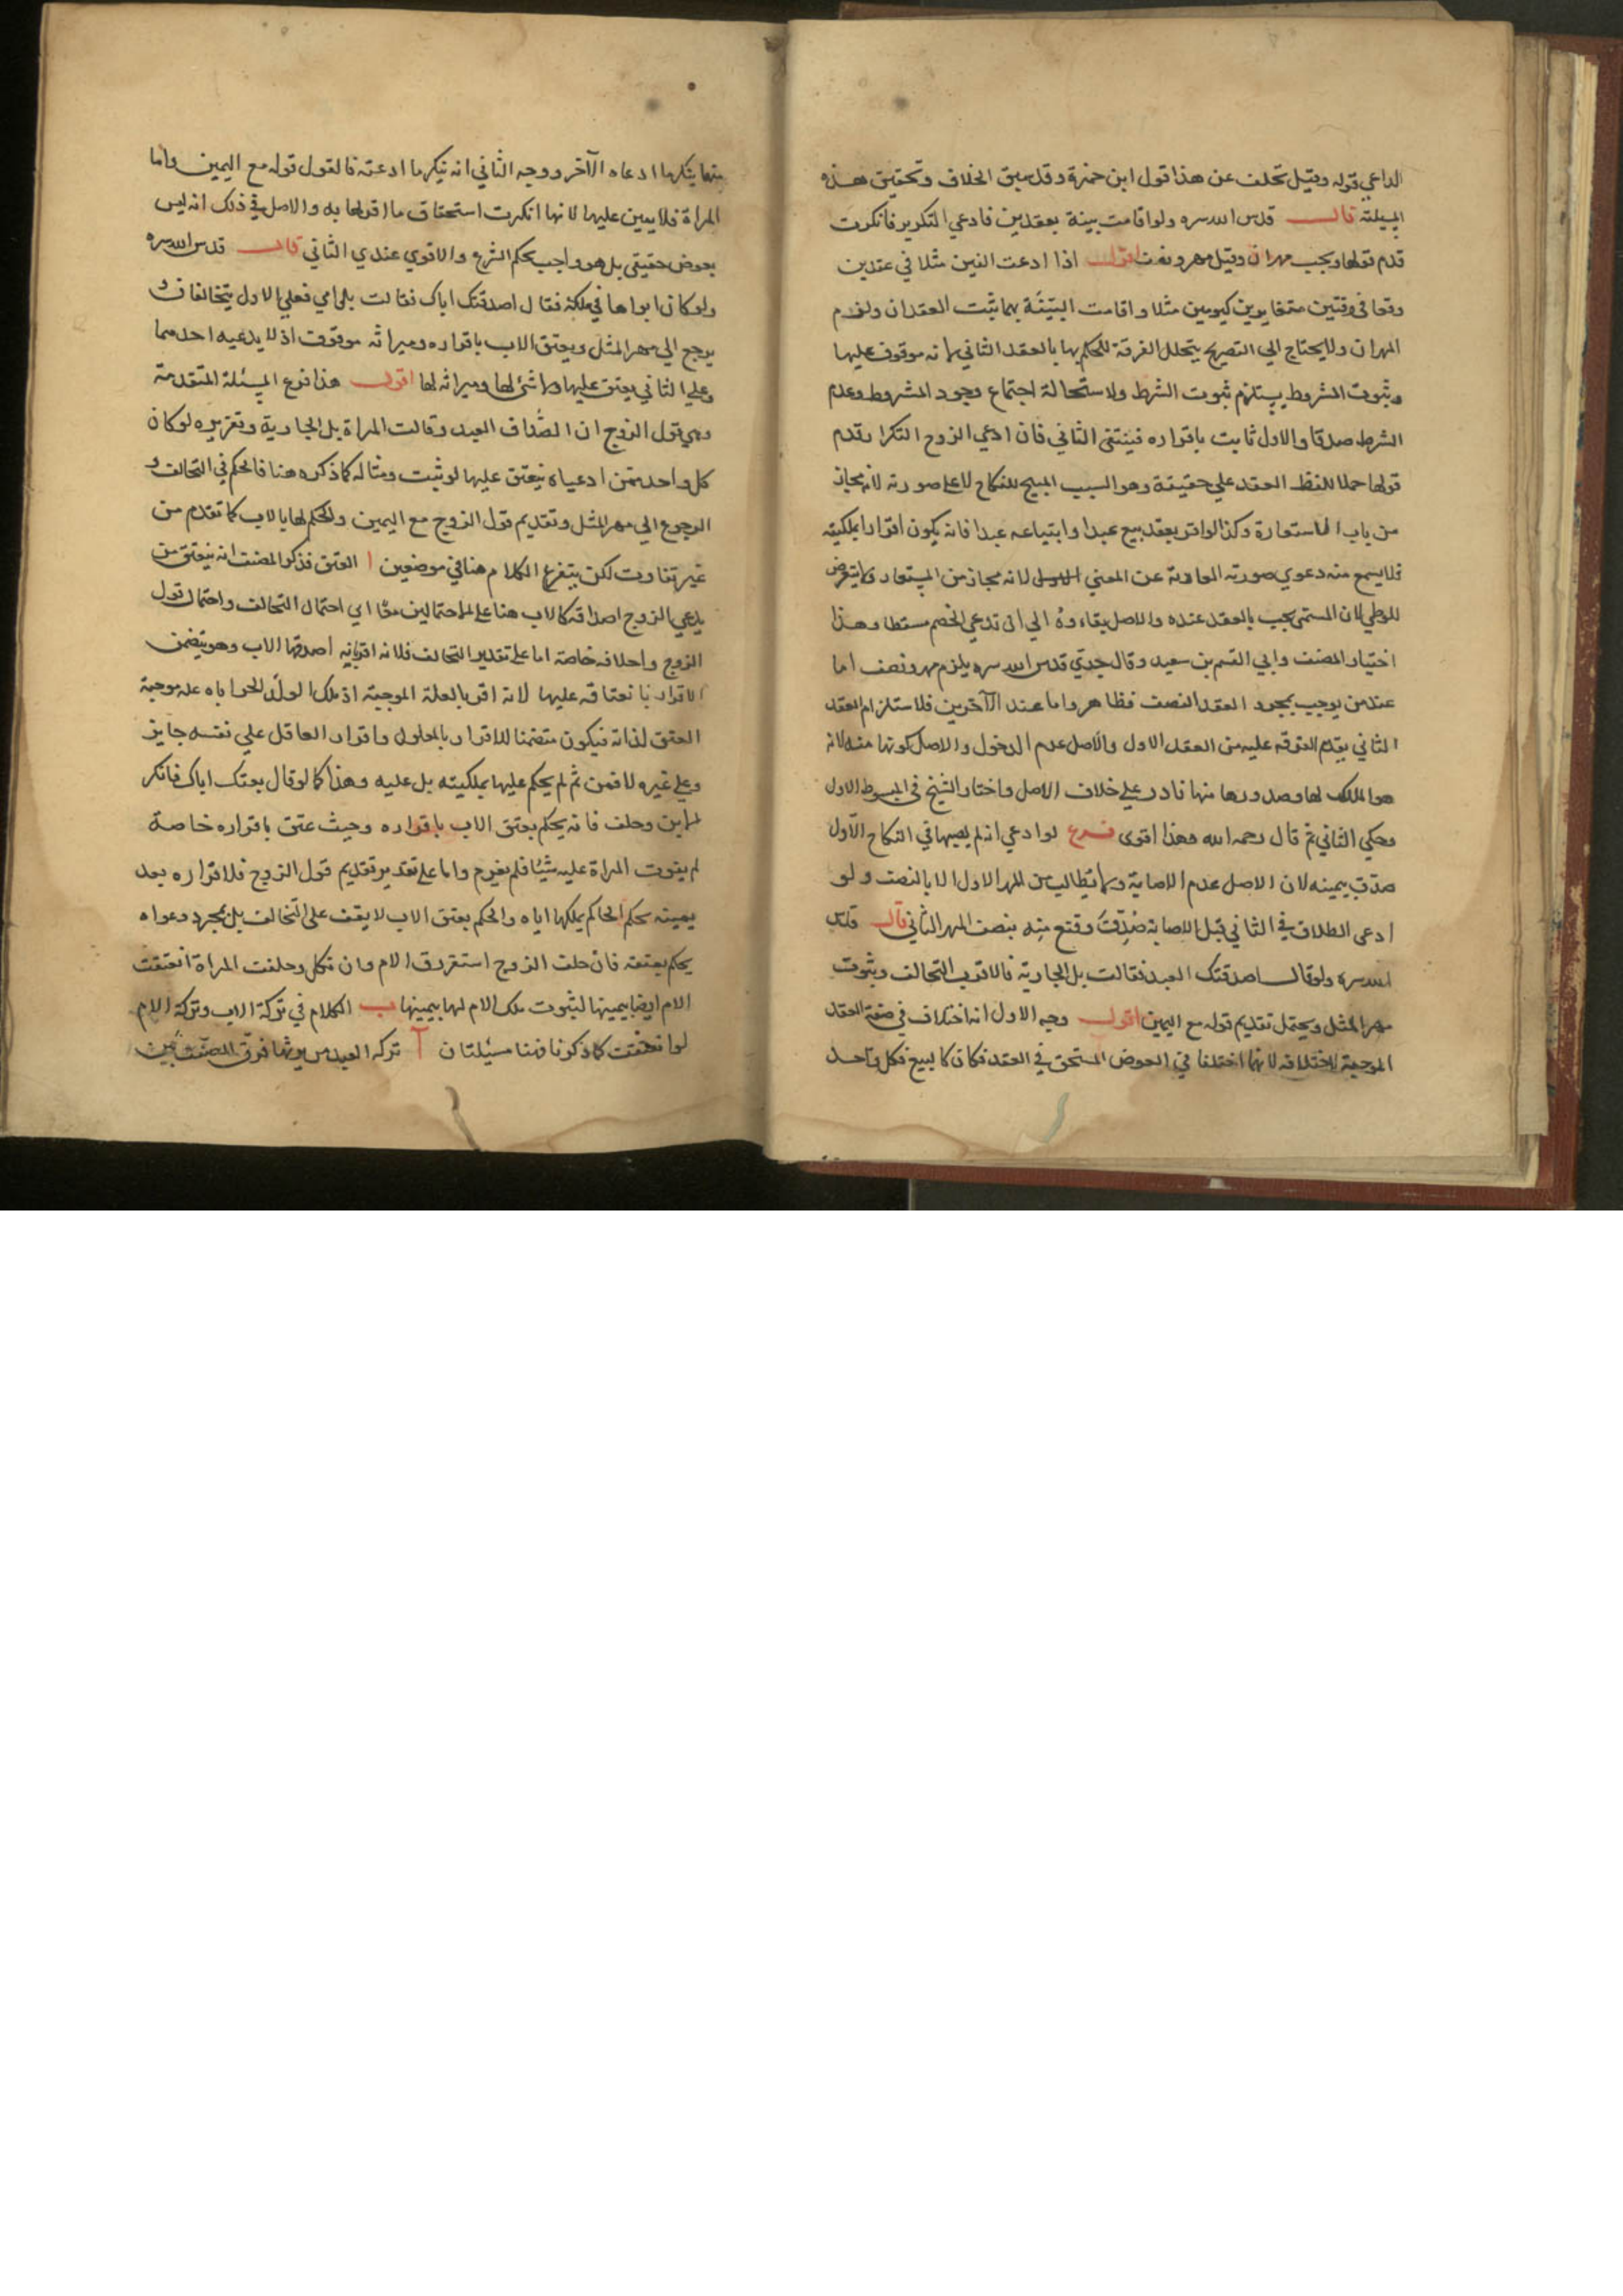 الداعي قوله وقيل تحلف عن هذا قول ابن حمزة وقد سبق الخلاف وتحقيق هذه
المسئلة قال قدس الله سره ولو اقامت بينة بعقدين فادعي التكرير فانكرت
قدم قولها ويجب مهران وقيل مهر ونصف اقول اذا ادعت الفين مثلا في عقدين
وقعا في وقتين متغايرين كيومين مثلا واقامت البيّنة بهما ثبت العقدان ولزم
المهران ولا يحتاج الي التصريح بتخلل الفرقة للحكم بها بالعقد الثاني لانه موقوف عليها
وثبوت المشروط يستلزم ثبوت الشرط ولاستحالة اجتماع وجود المشروط وعدم
الشرط صدقا والاول ثابت باقراره فينتفي الثاني فان ادعي الزوج التكرار قدم
قولها حملا للفظ العقد علي حقيقة وهو السبب المبيح للنكاح لا علي صورته لانه مجاز
من باب الاستعارة وكذا لو اقر بعقد بيع عبد او ابتياعه عبدا فانه يكون اقرارا بملكيته
فلا يسمع منه دعوي صورته العارية عن المعني لانه مجاز من المستعار ولا يتعرض
للوطي لان المسمي يجب بالعقد عنده والاصل بقاءوه الي ان تدعي الخصم مسقطا وهذا
اختيار المصنف وابي القسم بن سعيد وقال جدي قدس الله سره يلزم مهر ونصف اما
عند من يوجب بمجرد العقد النصف فظاهر واما عند الآخرين فلاستلزام العقد
الثاني بقدم الفرقة عليه من العقد الاول والاصل عدم الدخول والاصل كونها منه لانه
هو المالك لها وصدورها منها نادر علي خلاف الاصل واختار الشيخ في المبسوط الاول
وحكي الثاني ثم قال رحمه الله وهذا اقوى فرع لو ادعي انه لم يصبها في النكاح الاول
صدّق بيمينه لان الاصل عدم الاصابة ولا تطالب من المهر الاول الا بالنصف ولو
ادعى الطلاق في الثاني قبل الاصابة صُدّقت وقنع منه بنصف المهر الثاني قال قدس
الله سره ولو قال اصدقتك العبد فقالت بل الجارية فالاقرب التحالف وثبوت
مهر المثل ويحتمل تقديم قوله مع اليمين اقول وجه الاول انه اختلاف في صفة العقد
الموجبة لاختلافه لانهما اختلفا في العوض المستحق في العقد فكان كالبيع فكل واحد
منهما ينكر ما ادعاه الآخر ووجه الثاني انه ينكر ما ادعته فالقول قوله مع اليمين واما
المراة فلا يمين عليها لانها انكرت استحقاق ما اقر لها به والاصل في ذلك انه ليس
بعوض حقيقي بل هو واجب بحكم الشرع والاقوي عندي الثاني قال قدس الله سره
ولو كان ابواها في ملكه فقال اصدقتك اباك فقالت بل امي فعلي الاول يتحالفان و
يرجع الي مهر المثل ويعتق الاب باقراره وميراثه موقوف اذ لا يدعيه احدهما
وعلي الثاني يعتق عليها ولا شئ لها وميراثه لها اقول هذا فرع المسئلة المتقدمة
وهي قول الزوج ان الصّداق العبد وقالت المراة بل الجارية وتقريره لو كان
كل واحد ممن ادعياه ينعتق عليها لو ثبت ومثاله كما ذكره هنا فالحكم في التحالف و
الرجوع الي مهر المثل وتقديم قول الزوج مع اليمين والحكم لها بالاب كما تقدم من
غير تفاوت لكن يتفرع الكلام هنا في موضعين ا العتق فذكر المصنف انه ينعتق من
يدعي الزوج اصداقه كالاب هنا علي الاحتمالين معًا اي احتمال التحالف واحتمال قول
الزوج واحلافه خاصة اما علي تقدير التحالف فلانه اقر بانه اصدقها الاب وهو يتضمن
الاقرار بانعتاقه عليها لانه اقر بالعلة الموجبة اذ ملك الولد الحر اباه علة موجبة
العتق لذاته فيكون متضمنا للاقرار بالمعلول واقرار العاقل علي نفسه جايز
وعلي غيره لا فمن ثم لم يحكم عليها بملكيته بل عليه وهذا كما لو قال بعتك اباك فانكر
الابن وحلف فانه يحكم بعتق الاب باقراره وحيث عتق باقراره خاصة
لم يفوت المراة عليه شيئا فلم يغرم واما علي تقدير تقديم قول الزوج فلاقراره بعد
يمينه بحكم الحاكم بملكها اياه والحكم بعتق الاب لا يقف على التحالف بل بمجرد دعواه
يحكم بعتقه فان حلف الزوج استقر رق الام وان نكل وحلفت المراة انعتقت
الام ايضا بيمينها لثبوت ملك الام لها بيمينها ب الكلام في تركة الاب وتركة الام
لو انعتقت كما ذكرنا فهنا مسئلتان آ تركه العبد من يرثها فرّق المصنف بين